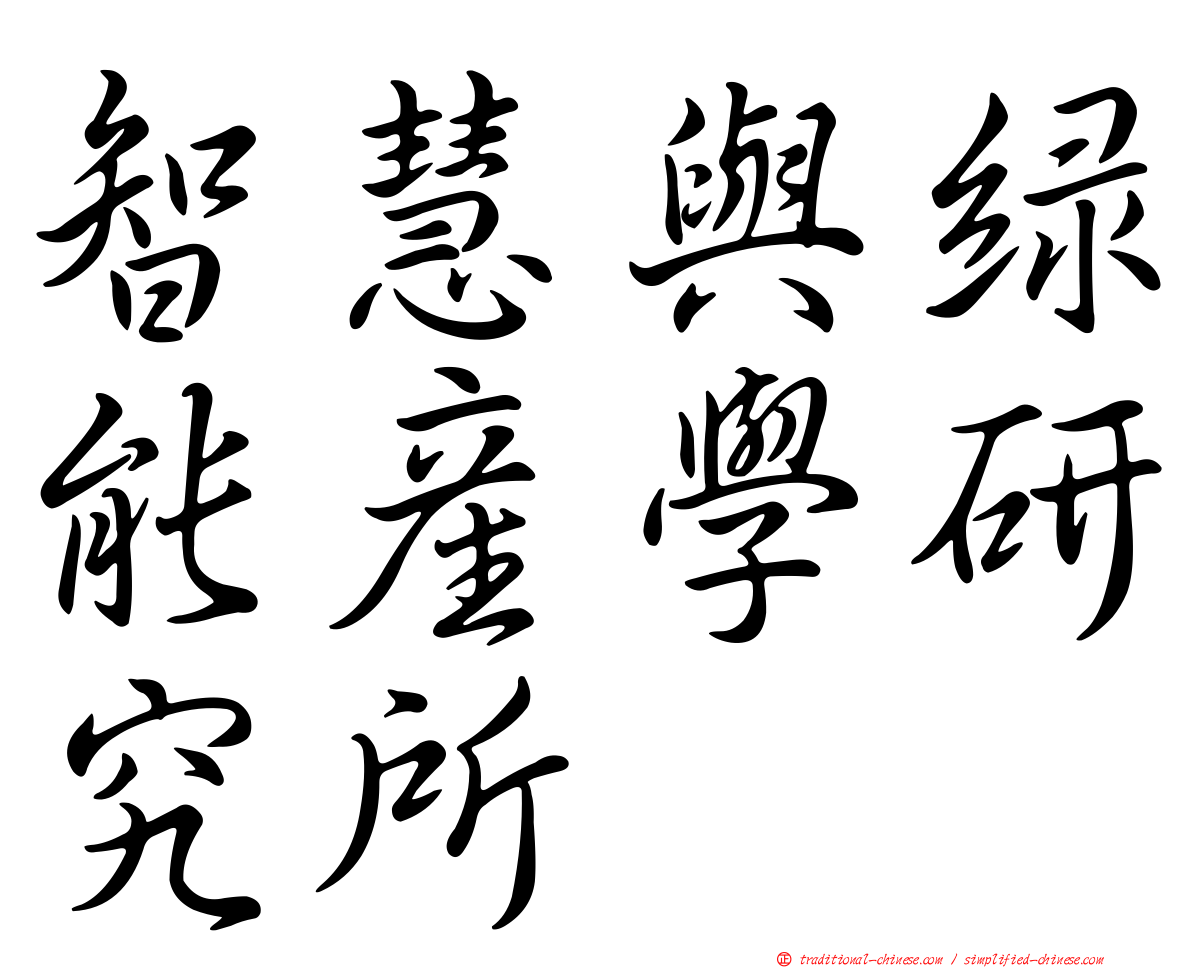 智慧與緑
能産學研
究所
㊣ traditional-chinese.com / simplified-chinese.com